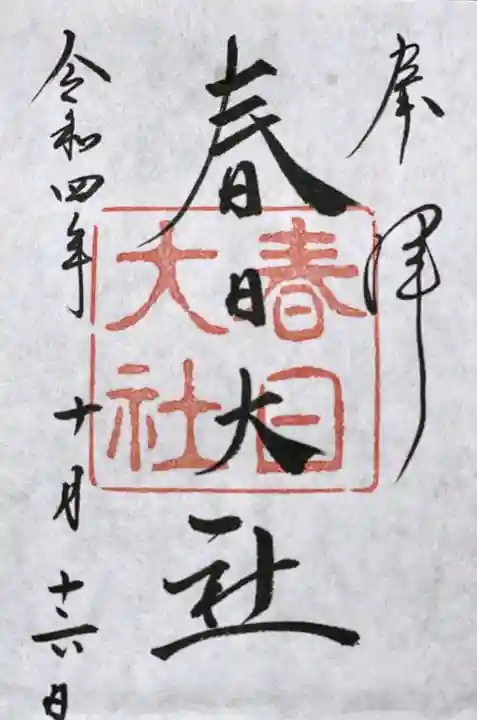 奉拝
春日大社
春日
大社
令和四年十月十六日